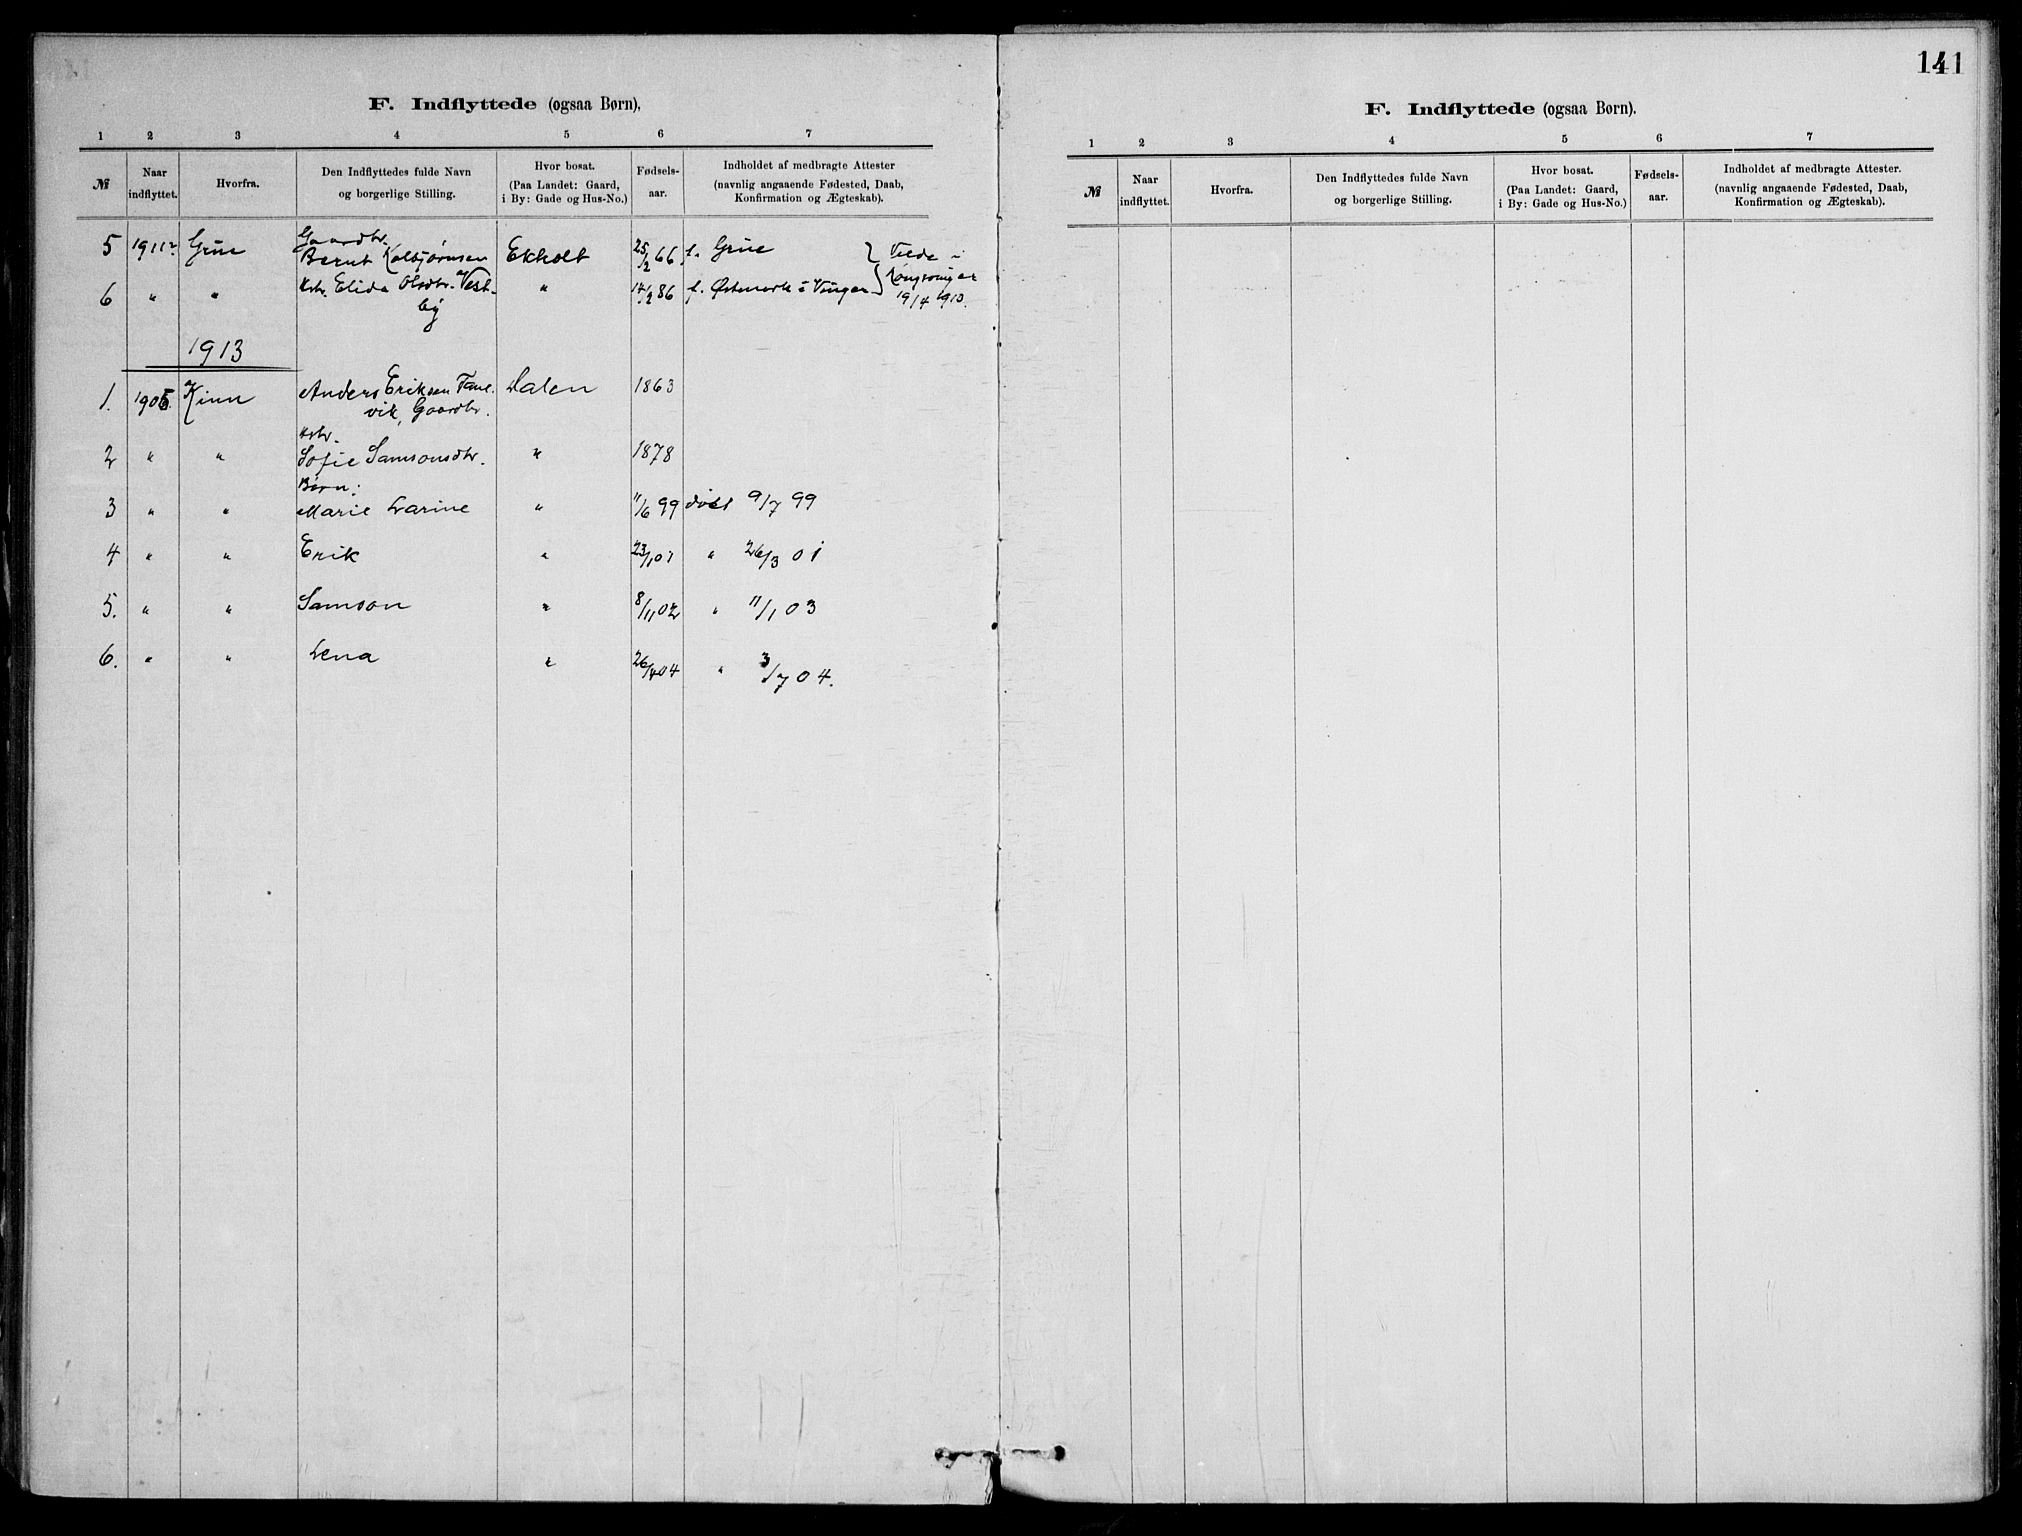 F. Indflyttede (ogsaa Børn).
1 2 3 4 5 6 7
№ Naar indflyttet. Hvorfra. Den Indflyttedes fulde Navn og borgerlige Stilling. Hvor bosat. (Paa Landet: Gaard, i By: Gade og Hus-No.) Fødsels-aar. Indholdet af medbragte Attester (navnlig angaaende Fødested, Daab, Konfirmation og Ægteskab).
Gaardbr.
5 1911 Grue Bernt Kolbjørnsen Ekholt 25/2 66 f. Grue } Viede i
6 " " Hstr. Elida Olsdtr. Vest- " 14/2 86 f. Østmark i Vinger } Kongsvinger
by 19/4 1913.
1913
1. 1905. Kinn Anders Eriksen Dalen 1863
vik, Gaardbr.
Hstr.
2 " " Sofie Samsonsdtr. " 1878
Børn:
3 " " Marie Larine " 11/6 99 døbt 9/7 99
4 " " Erik " 23/1 01 " 26/3 01
5. " " Samson " 8/11 02 " 11/1 03
6. " " Lena " 26/4 04 " 3/7 04.
141
F. Indflyttede (ogsaa Børn).
1 2 3 4 5 6 7
№ Naar indflyttet. Hvorfra. Den Indflyttedes fulde Navn og borgerlige Stilling. Hvor bosat. (Paa Landet: Gaard, i By: Gade og Hus-No.) Fødsels-aar. Indholdet af medbragte Attester. (navnlig angaaende Fødested, Daab, Konfirmation og Ægteskab).